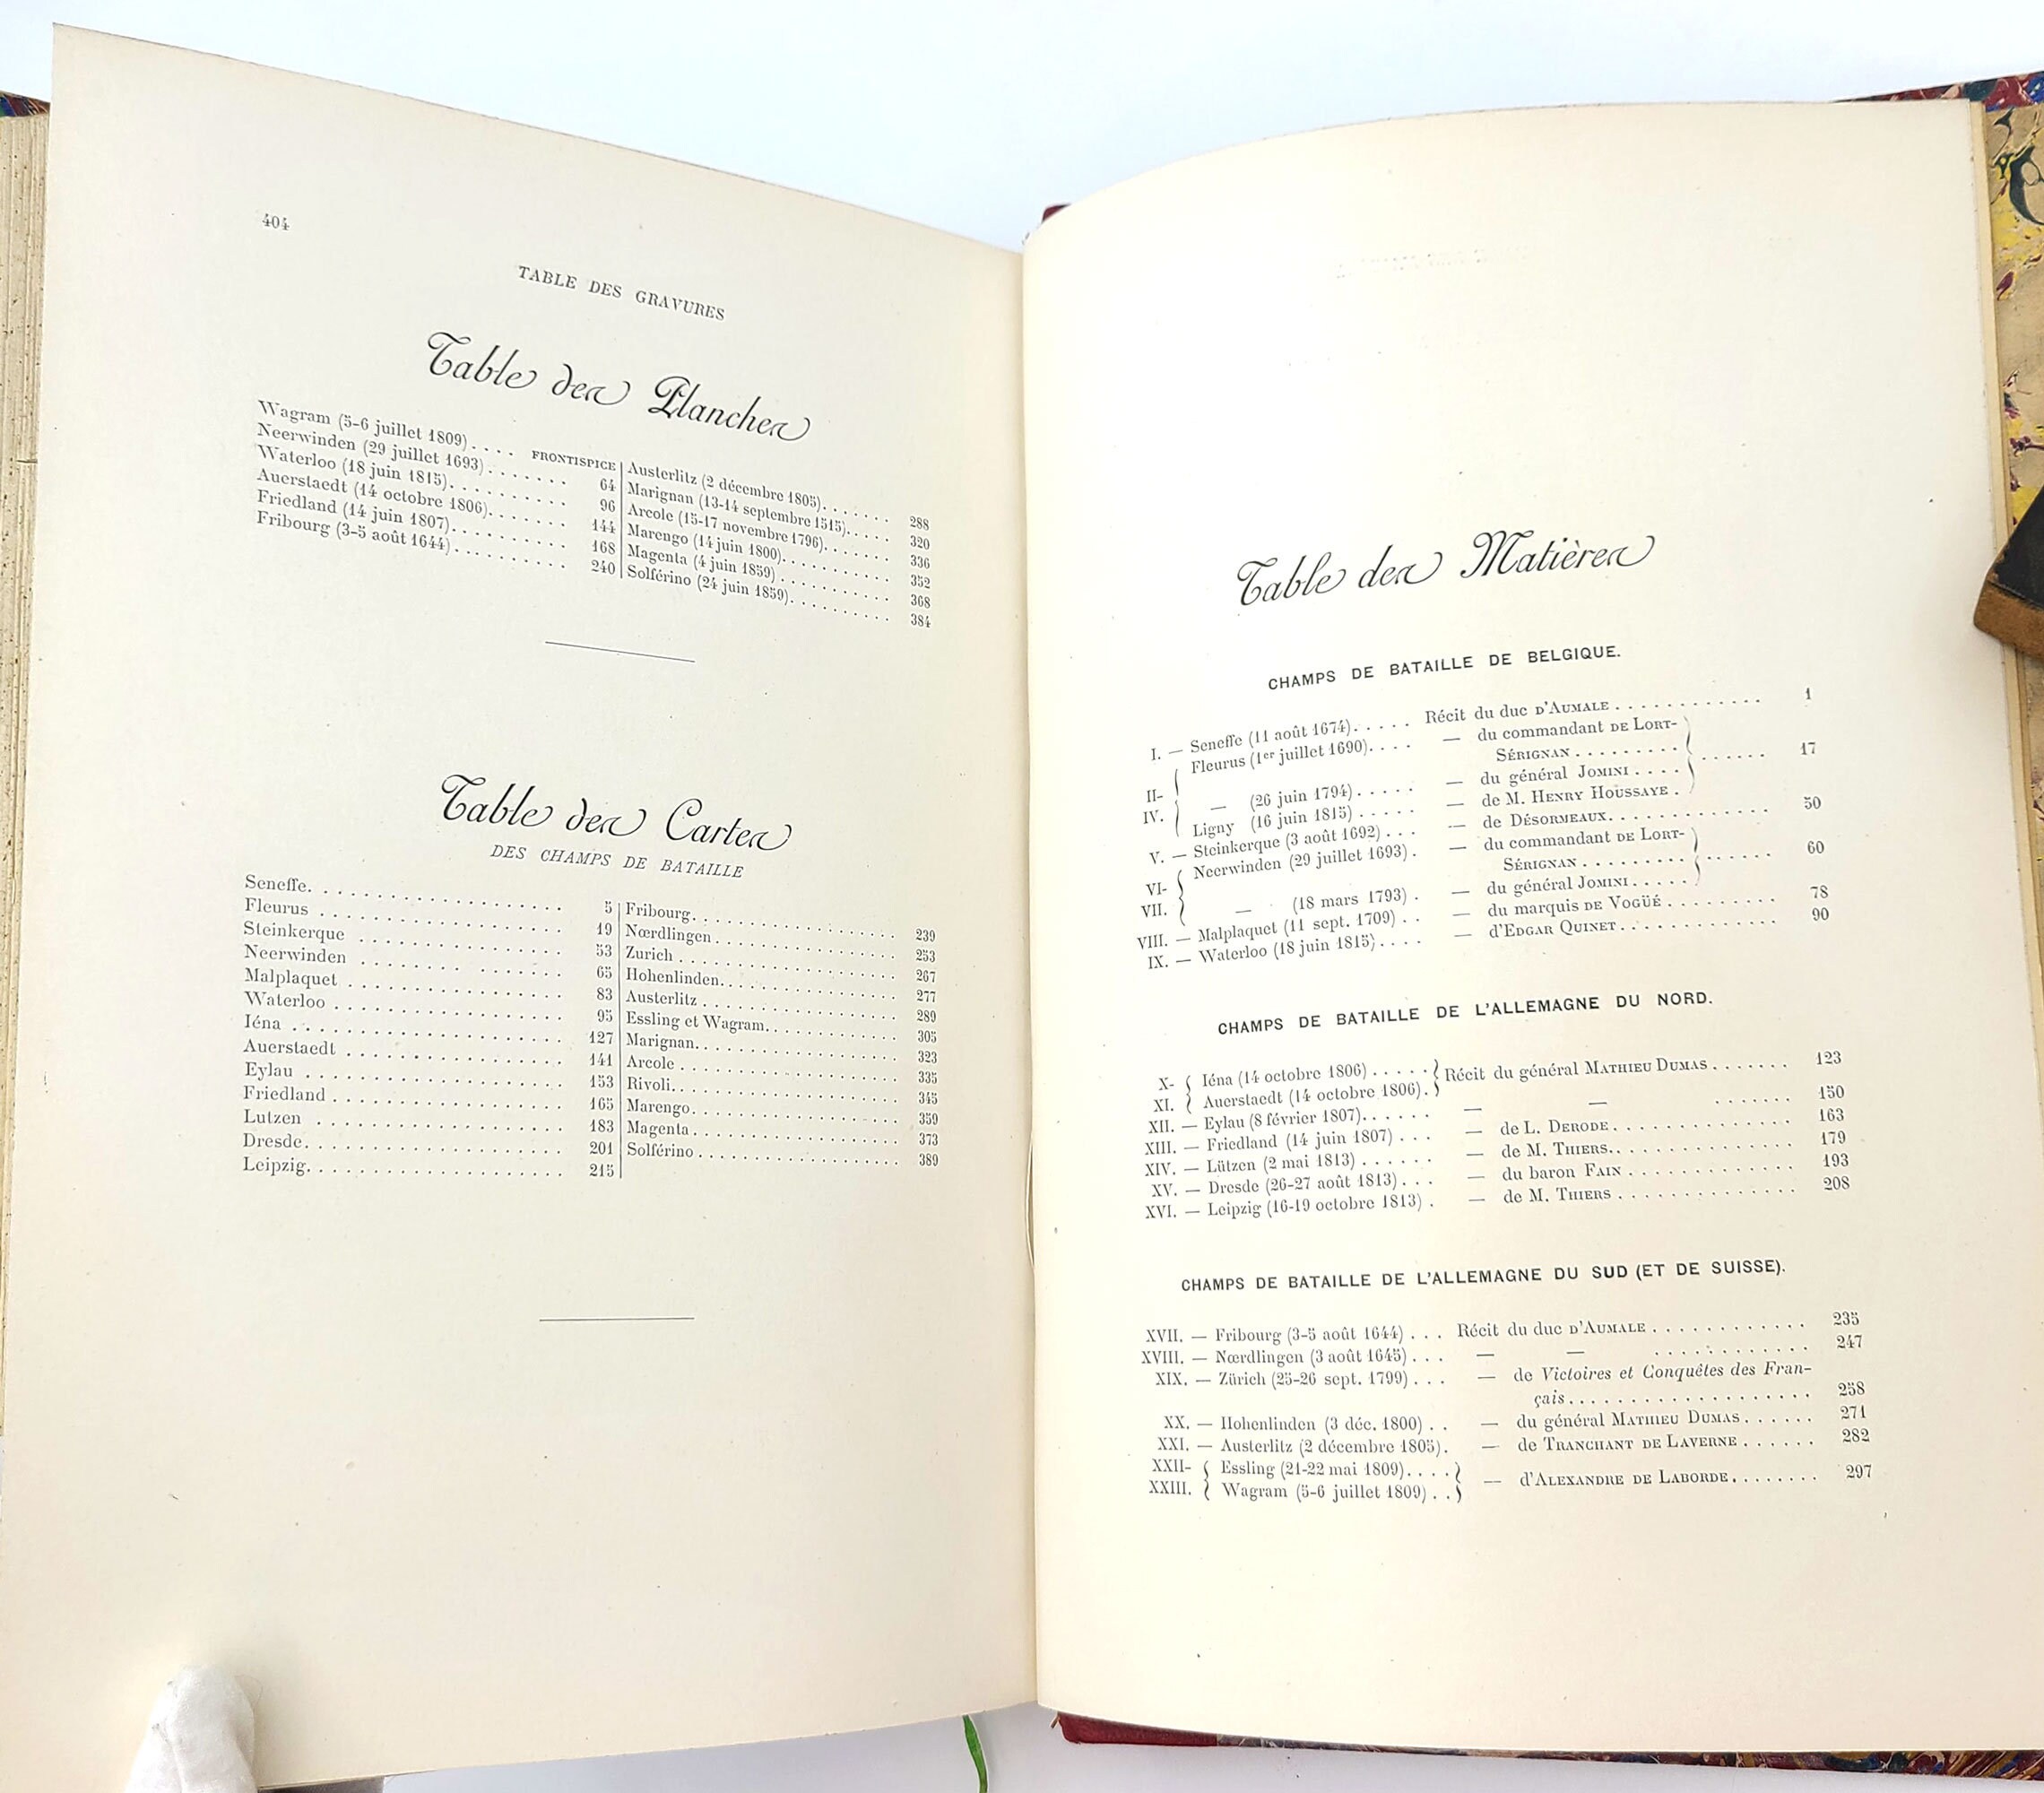 404
TABLE DES GRAVURES
Table des Planches
Wagram (5-6 juillet 1809). . . . FRONTISPICE
Neerwinden (29 juillet 1693). . . . . . . 64
Waterloo (18 juin 1815). . . . . . . . . . 96
Auerstaedt (14 octobre 1806). . . . . . . 144
Friedland (14 juin 1807). . . . . . . . . . 168
Fribourg (3-5 août 1644) . . . . . . . . . . 240
Austerlitz (2 décembre 1805). . . . . . . 288
Marignan (13-14 septembre 1515). . . . . 320
Arcole (15-17 novembre 1796). . . . . . . 336
Marengo (14 juin 1800). . . . . . . . . . . 352
Magenta (4 juin 1859) . . . . . . . . . . . 368
Solférino (24 juin 1859). . . . . . . . . . 384
Table des Cartes
DES CHAMPS DE BATAILLE
Seneffe. . . . . . . . . . . . . . . . . . 5
Fleurus . . . . . . . . . . . . . . . . . . 19
Steinkerque . . . . . . . . . . . . . . . 53
Neerwinden . . . . . . . . . . . . . . . 65
Malplaquet . . . . . . . . . . . . . . . . 83
Waterloo . . . . . . . . . . . . . . . . . 95
Iéna . . . . . . . . . . . . . . . . . . . . 127
Auerstaedt . . . . . . . . . . . . . . . . 141
Eylau . . . . . . . . . . . . . . . . . . . 153
Friedland . . . . . . . . . . . . . . . . . 165
Lutzen . . . . . . . . . . . . . . . . . . 183
Dresde. . . . . . . . . . . . . . . . . . . 201
Leipzig. . . . . . . . . . . . . . . . . . . 215
Fribourg. . . . . . . . . . . . . . . . . 239
Nœrdlingen . . . . . . . . . . . . . . . 253
Zurich . . . . . . . . . . . . . . . . . . 267
Hohenlinden. . . . . . . . . . . . . . . 277
Austerlitz . . . . . . . . . . . . . . . . 289
Essling et Wagram. . . . . . . . . . . 305
Marignan. . . . . . . . . . . . . . . . . 323
Arcole . . . . . . . . . . . . . . . . . . 335
Rivoli. . . . . . . . . . . . . . . . . . . 345
Marengo. . . . . . . . . . . . . . . . . 359
Magenta. . . . . . . . . . . . . . . . . 373
Solférino . . . . . . . . . . . . . . . . . 389
Table des Matières
CHAMPS DE BATAILLE DE BELGIQUE.
I. — Seneffe (11 août 1674). . . . . Récit du duc D'AUMALE . . . . . . . . . . . . 1
II- Fleurus (1er juillet 1690). . . . — du commandant DE LORT-
SÉRIGNAN . . . . . . . . . 17
— (26 juin 1794). . . . . — du général JOMINI . . . .
IV. Ligny (16 juin 1815) . . . . . — de M. HENRY HOUSSAYE .
V. — Steinkerque (3 août 1692) . . . — de DÉSORMEAUX. . . . . . . . . . . . . 50
VI- Neerwinden (29 juillet 1693) . — du commandant DE LORT-
SÉRIGNAN . . . . . . . . . 60
VII. — (18 mars 1793) . — du général JOMINI . . . . .
VIII. — Malplaquet (11 sept. 1709) . . — du marquis DE VOGÜÉ . . . . . . . . . 78
IX. — Waterloo (18 juin 1815) . . . . — d'EDGAR QUINET . . . . . . . . . . . . 90
CHAMPS DE BATAILLE DE L'ALLEMAGNE DU NORD.
X- Iéna (14 octobre 1806) . . . . . Récit du général MATHIEU DUMAS . . . . . . . 123
XI. Auerstaedt (14 octobre 1806).
XII. — Eylau (8 février 1807). . . . . . — — . . . . . . . 150
XIII. — Friedland (14 juin 1807) . . . — de L. DERODE. . . . . . . . . . . . . . 163
XIV. — Lützen (2 mai 1813) . . . . . . — de M. THIERS. . . . . . . . . . . . . . . 179
XV. — Dresde (26-27 août 1813) . . . — du baron FAIN . . . . . . . . . . . . . 193
XVI. — Leipzig (16-19 octobre 1813) . — de M. THIERS . . . . . . . . . . . . . . 208
CHAMPS DE BATAILLE DE L'ALLEMAGNE DU SUD (ET DE SUISSE).
XVII. — Fribourg (3-5 août 1644) . . . Récit du duc D'AUMALE . . . . . . . . . . . . 235
XVIII. — Nœrdlingen (3 août 1645) . . . — — . . . . . . . . . . . . 247
XIX. — Zürich (25-26 sept. 1799) . . . — de Victoires et Conquêtes des Fran-
çais . . . . . . . . . . . . . . . . . . . 258
XX. — Hohenlinden (3 déc. 1800) . . — du général MATHIEU DUMAS . . . . . . 271
XXI. — Austerlitz (2 décembre 1805). — de TRANCHANT DE LAVERNE . . . . . . 282
XXII- Essling (21-22 mai 1809). . . . — d'ALEXANDRE DE LABORDE . . . . . . . . 297
XXIII. Wagram (5-6 juillet 1809) . .